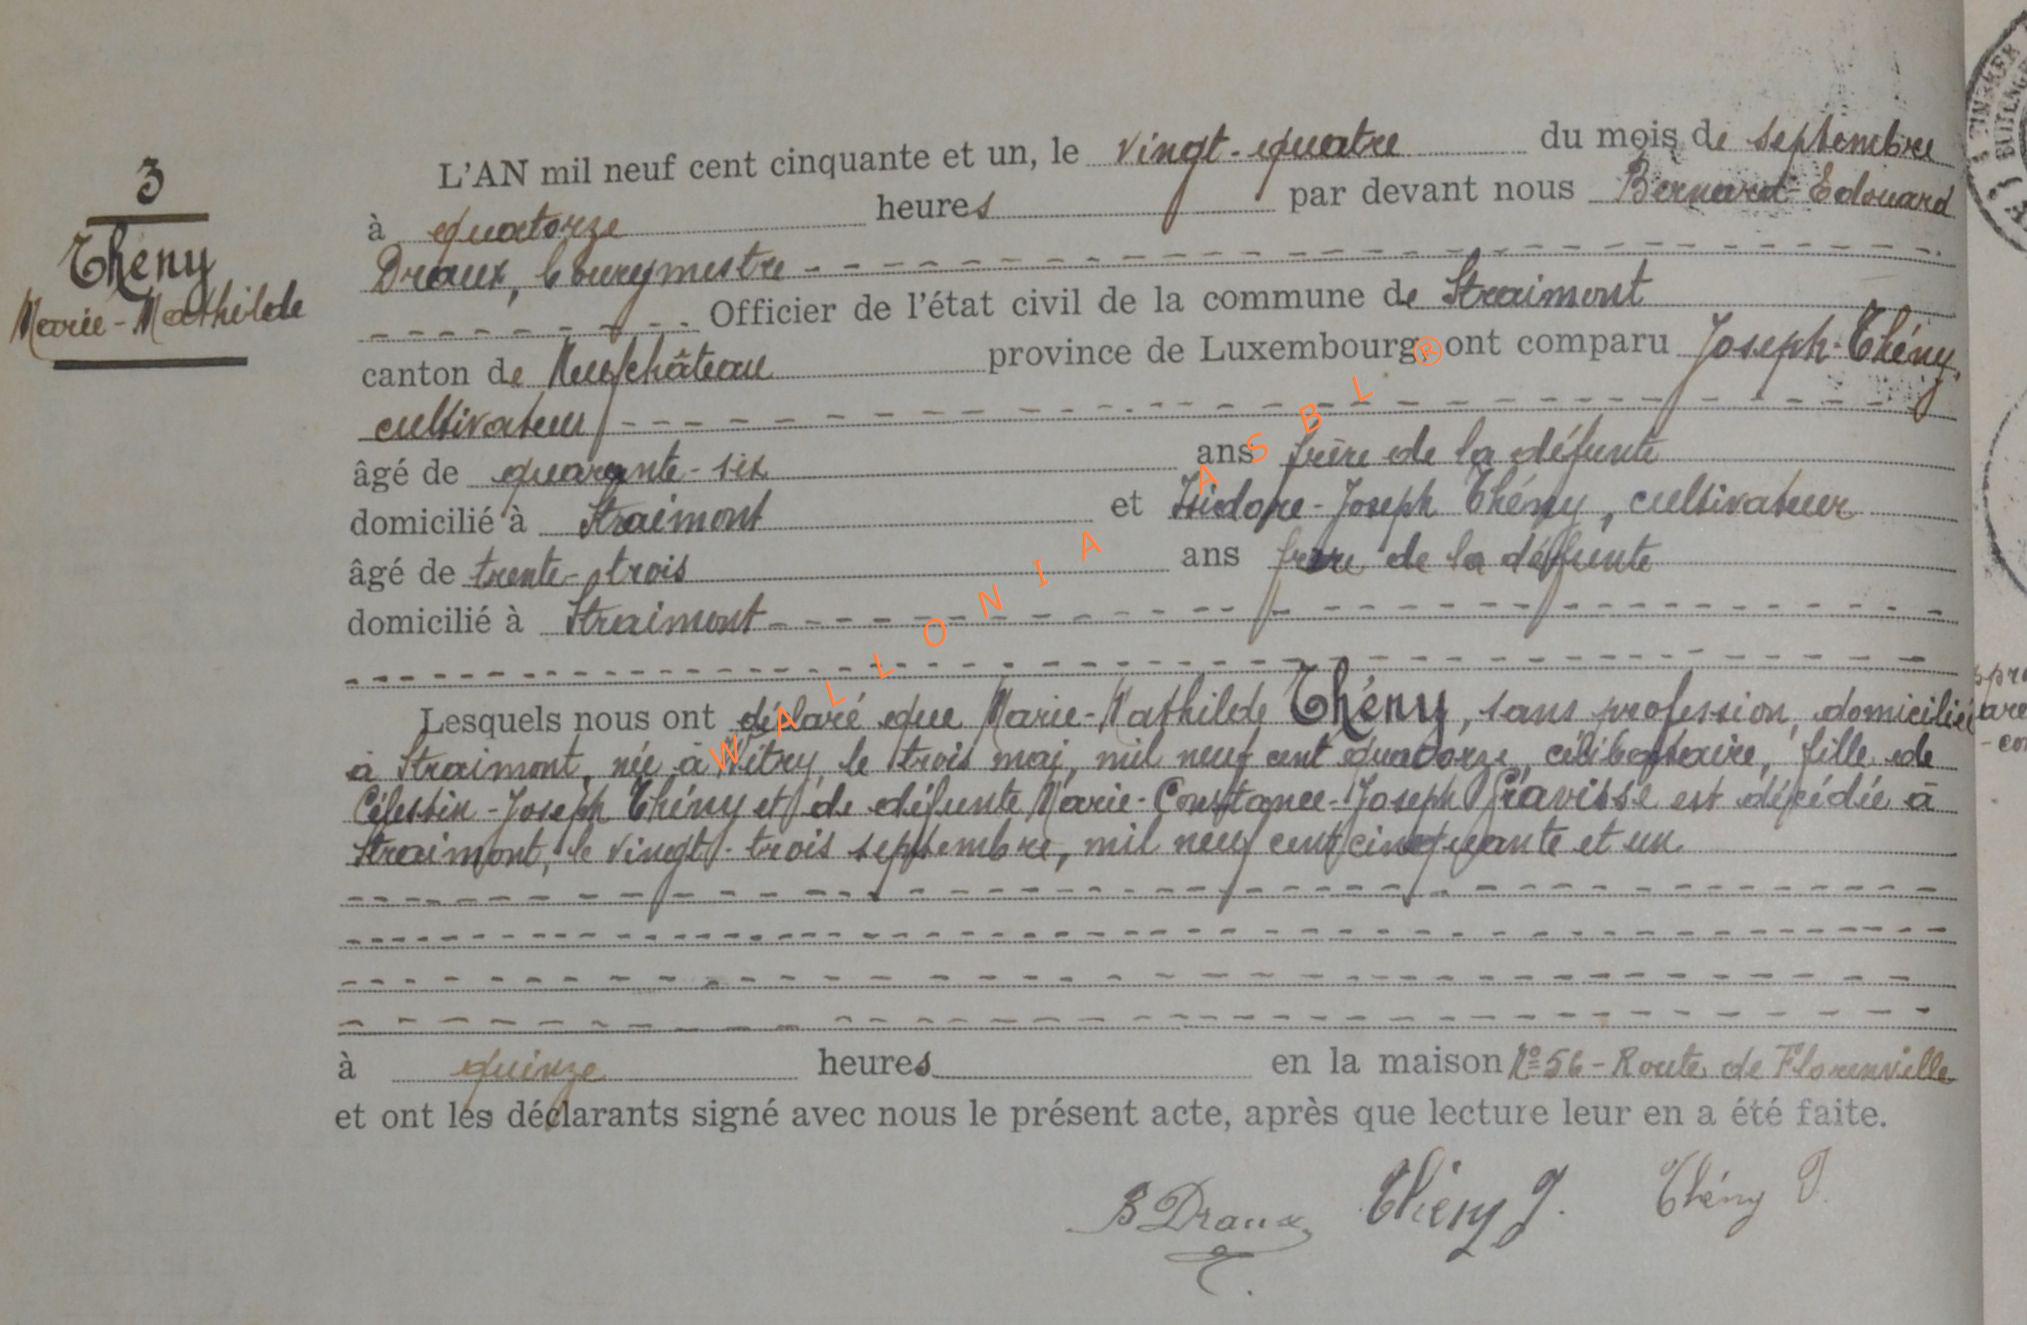 3
Thény
Marie-Mathilde
L'AN mil neuf cent cinquante et un, le vingt-quatre du mois de septembre
à quatorze heures par devant nous Bernard-Edouard
Draux, bourgmestre
Officier de l'état civil de la commune de Straimont
canton de Neufchâteau province de Luxembourg, ont comparu Joseph Thény,
cultivateur
âgé de quarante-six ans frère de la défunte
domicilié à Straimont et Isidore-Joseph Thény, cultivateur
âgé de trente-trois ans frère de la défunte
domicilié à Straimont
Lesquels nous ont déclaré que Marie-Mathilde Thény, sans profession, domiciliée
à Straimont, née à Witry, le trois mai, mil neuf cent quatorze, célibataire, fille de
Célestin-Joseph Thény et de défunte Marie-Constance-Joseph Gravisse est décédée à
Straimont, le vingt-trois septembre, mil neuf cent cinquante et un
à quinze heures en la maison N° 56 - Route de Florenville
et ont les déclarants signé avec nous le présent acte, après que lecture leur en a été faite.
B Draux Thény J. Thény J.
WALLONIA ASBL ®